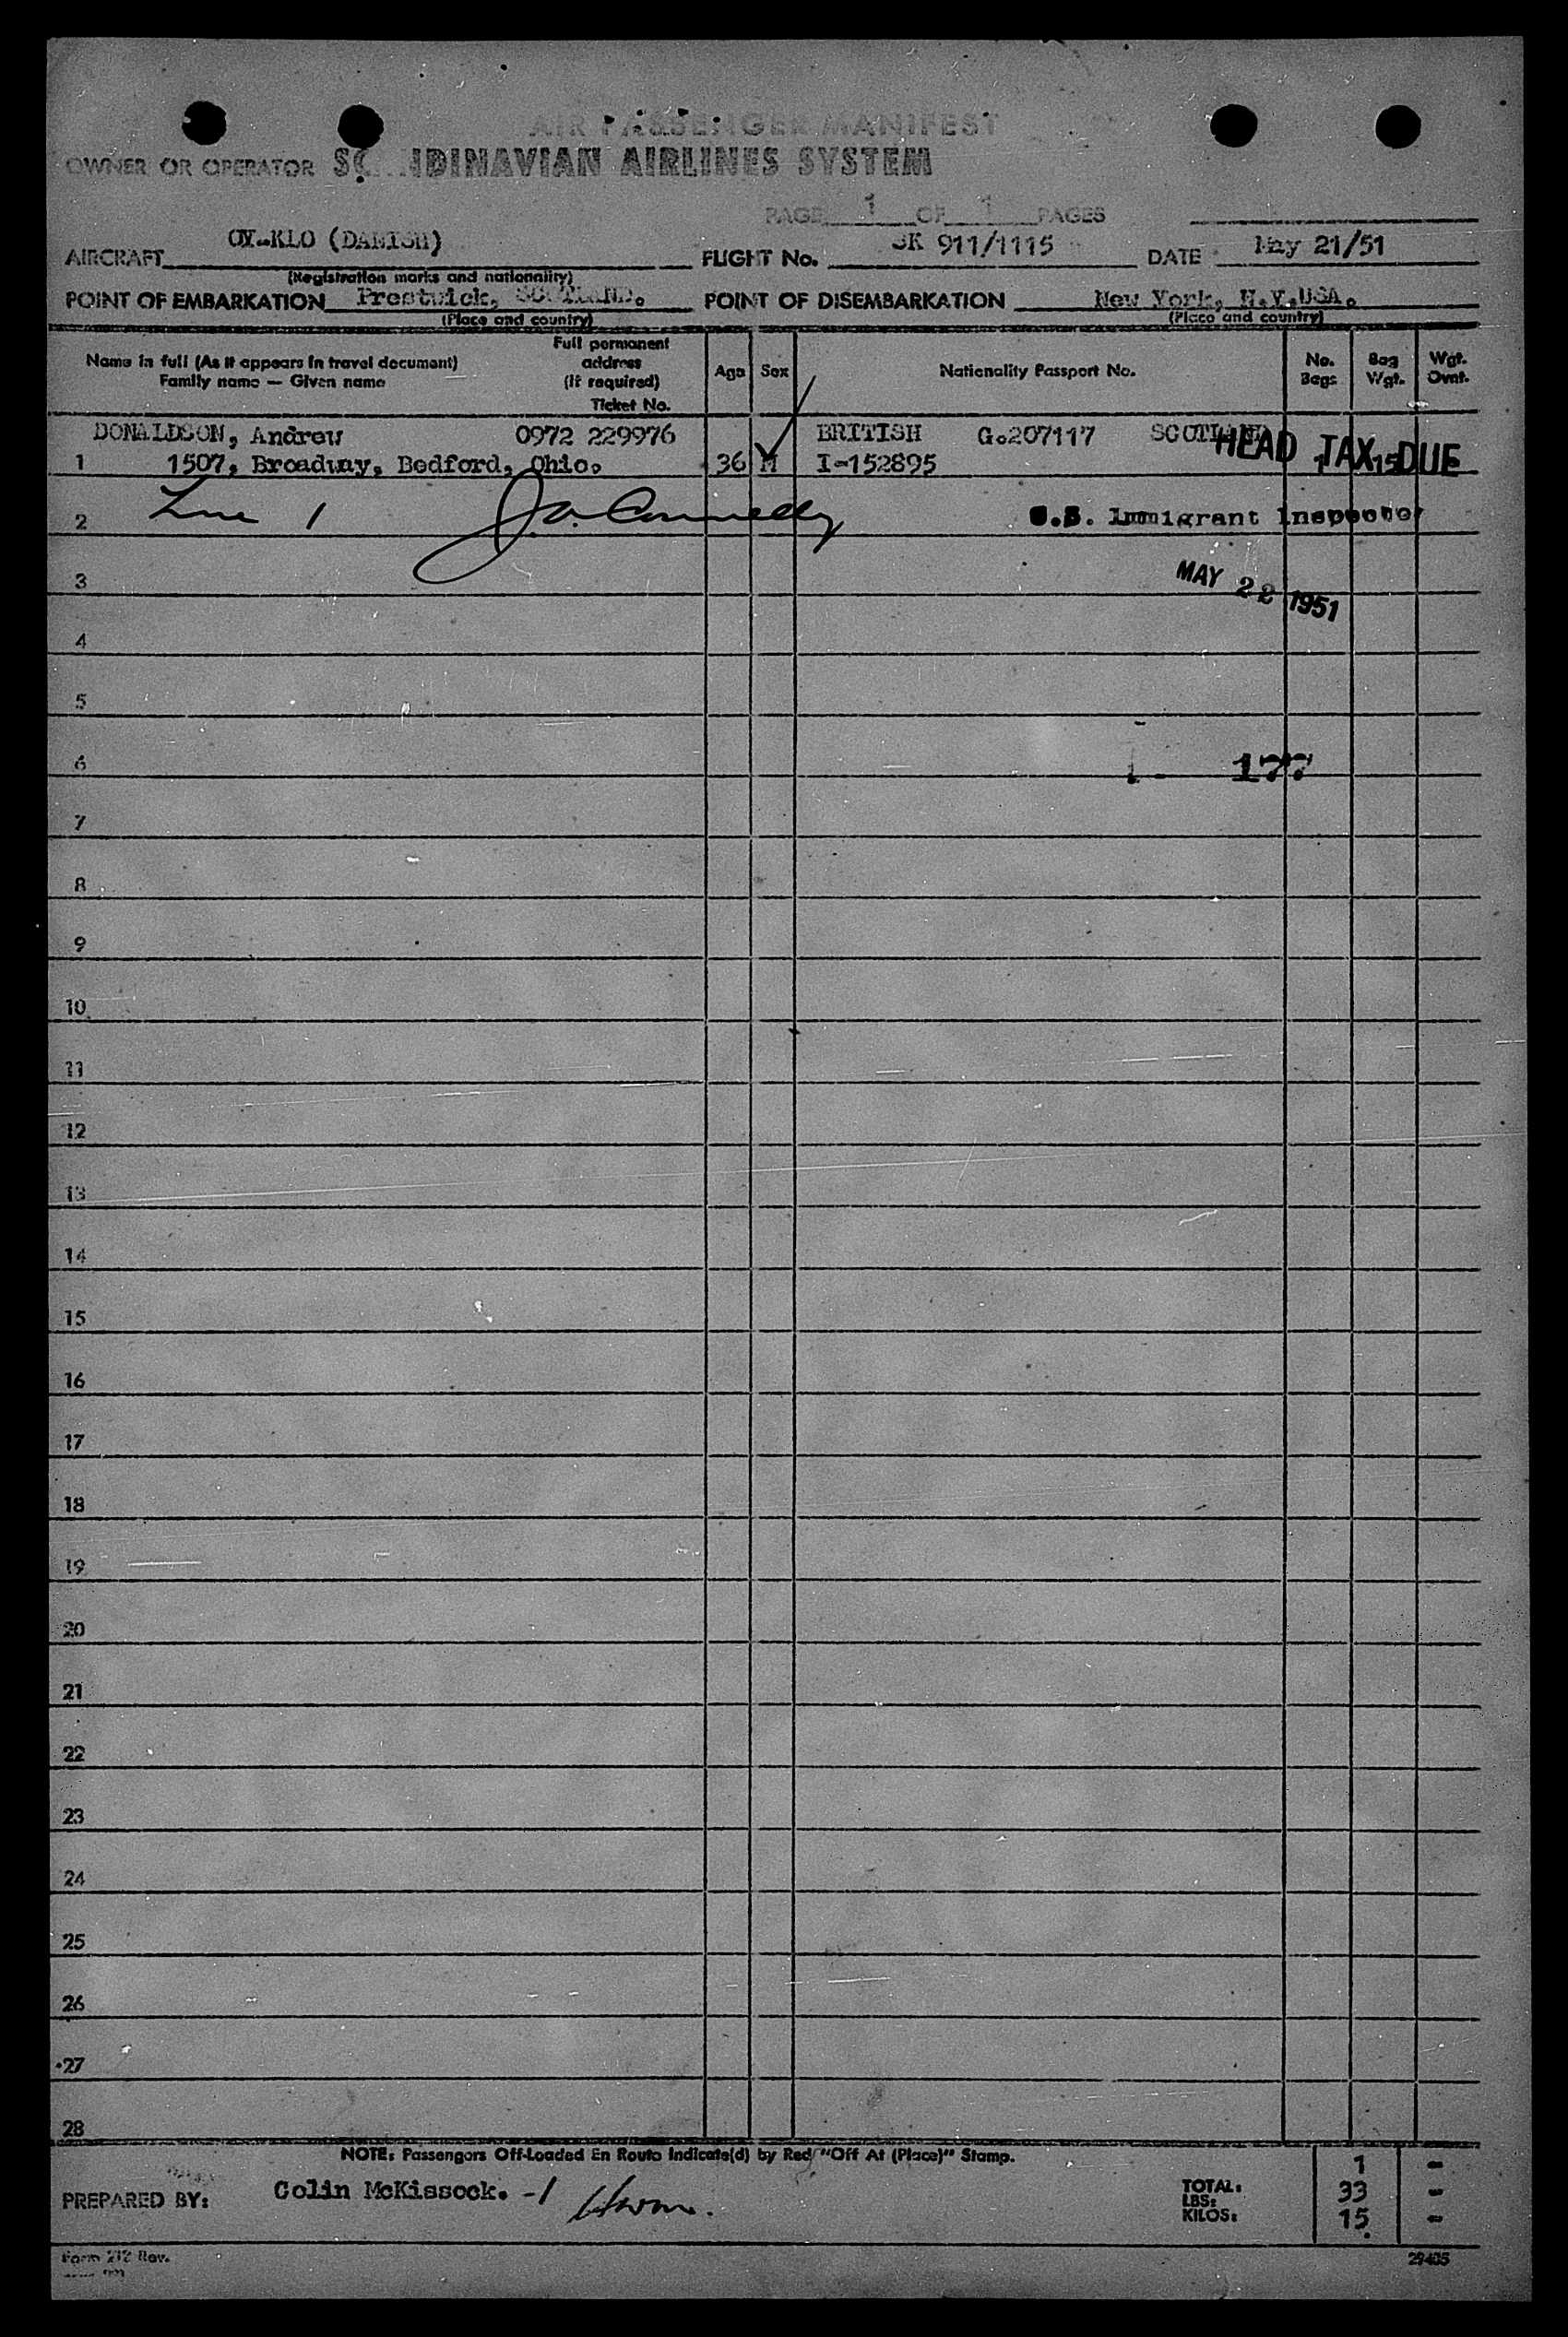 AIR PASSENGER MANIFEST
OWNER OR OPERATOR SCANDINAVIAN AIRLINES SYSTEM
PAGE 1 OF 1 PAGES
AIRCRAFT OY-KLO (DANISH) FLIGHT No. SK 911/1115 DATE May 21/51
(Registration marks and nationality)
POINT OF EMBARKATION Prestwick, SCOTLAND. POINT OF DISEMBARKATION New York, N.Y.USA.
(Place and country) (Place and country)
Name in full (As it appears in travel document) Family name — Given name
Full permanent address (If required) Ticket No.
Age Sex Nationality Passport No. No. Bags Bag Wgt. Wgt. Ovnt.
DONALDSON, Andrew 0972 229976 BRITISH G.207117 SCOTLAND
1 1507, Broadway, Bedford, Ohio. 36 M I-152895 1 15
HEAD TAX DUE
2 Line 1 J.A. Connelly U.S. Immigrant Inspector
MAY 22 1951
3
4
5
6 177
7
8
9
10
11
12
13
14
15
16
17
18
19
20
21
22
23
24
25
26
27
28
NOTE: Passengers Off-Loaded En Route Indicate(d) by Red "Off At (Place)" Stamp.
PREPARED BY: Colin McKissock. -1
TOTAL: 1 -
LBS: 33 -
KILOS: 15 -
Form 212 Rev.
29405